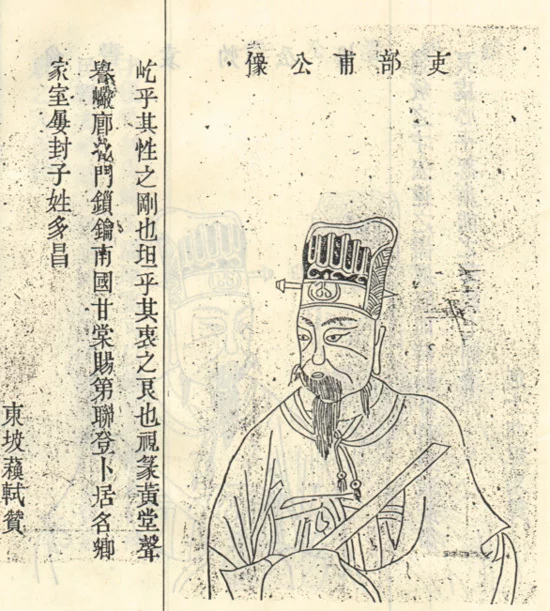 吏部甫公像
屹乎其性之剛也坦乎其衷之良也視篆黃堂聲
譽巖廊花門鎖鑰南國甘棠賜第聯登卜居名鄉
家室屢封子姓多昌
東坡蘓軾贊